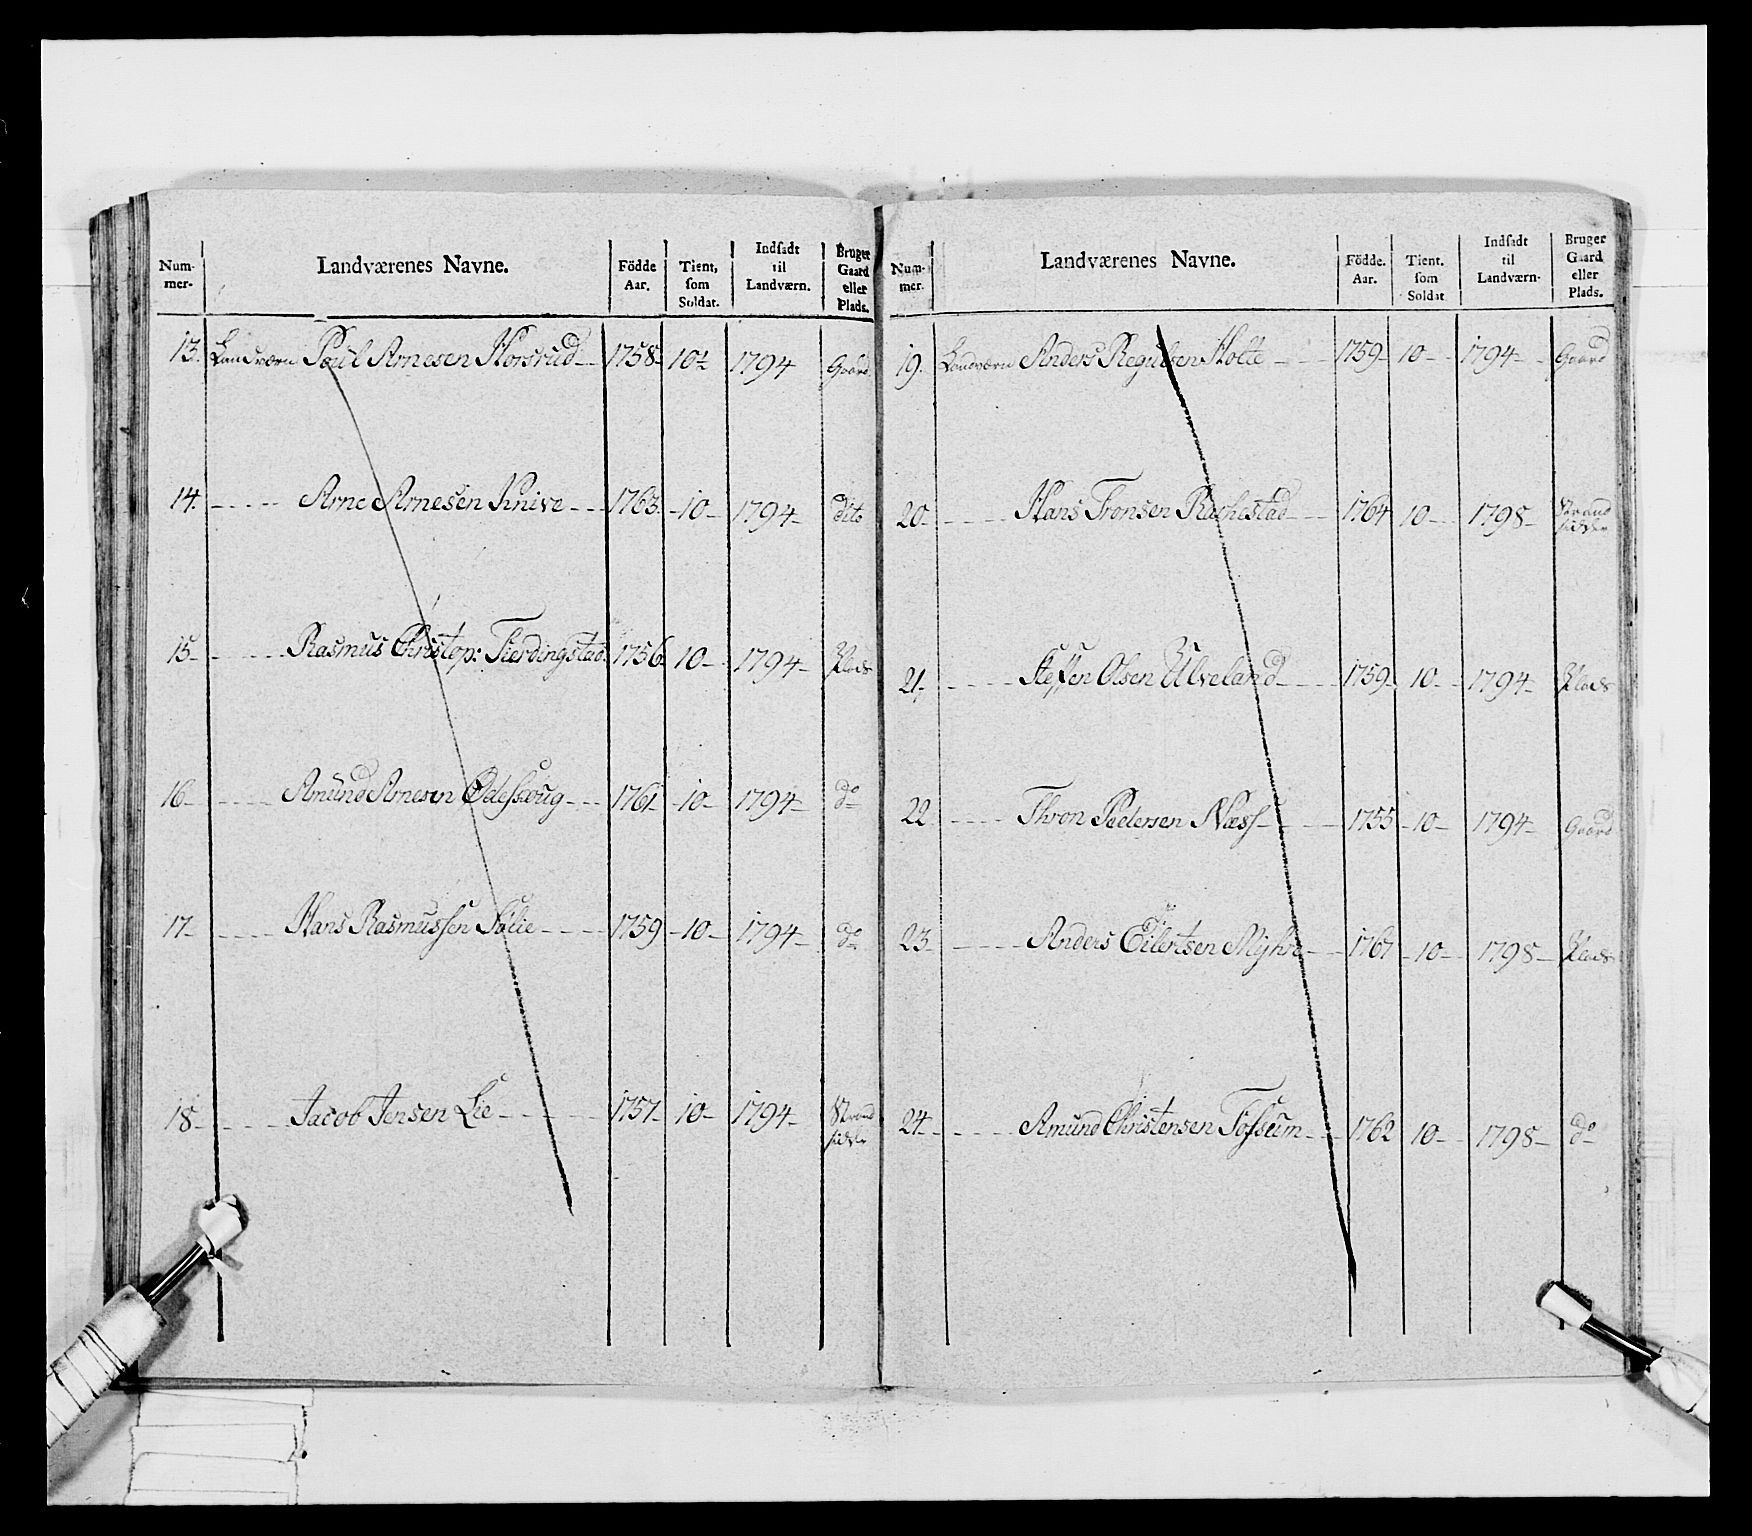 Num-
mer.
Landværenes Navne.
Födde
Aar.
Tient,
som
Soldat.
Indsadt
til
Landværn.
Bruger
Gaard
eller
Plads.
13. Landværn Poul Arnesen Horsrud 1758 10 1794 Gaard
14. Arne Arnesen Knive 1763 10 1794 dito
15 Rasmus Christop: Fierdingstad 1756 10 1794 Plads
16 Amund Arnesen 1761 10 1794 do
17 Hans Rasmussen Sølie 1759 10 1794 do
18 Jacob Jensen Lie 1757 10 1794 Strand
sidder
Num-
mer.
Landværenes Navne.
Födde.
Aar.
Tient.
som
Soldat
Indsadt
til
Landværn.
Bruger
Gaard
eller
Plads.
19. Landværn Anders Regulsen Holte 1759 10 1794 Gaard
20 Hans Tronsen 1764 10 1798 Strand
sidder
21 Steffen Olsen Ulveland 1759 10 1794 Plads
22 Thron Pedersen Næss 1755 10 1794 Gaard
23 Anders Eilertsen Myhre 1767 10 1798 Plads
24 Amund Christensen Fossum 1762 10 1798 do